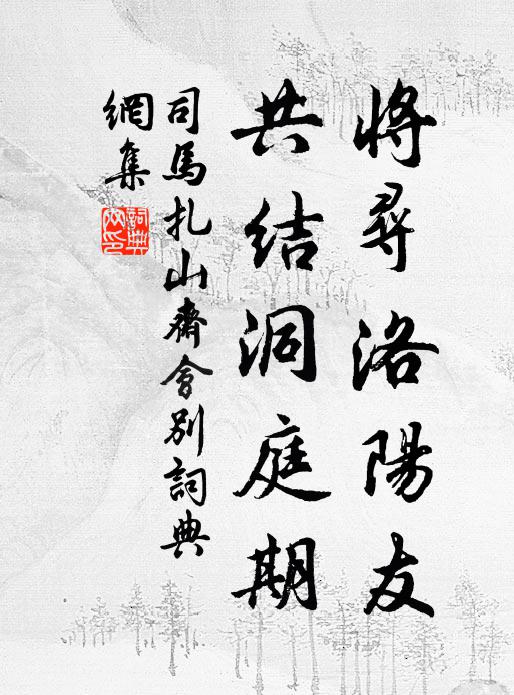 將尋洛陽友
共結洞庭期
司馬扎山齋會別詞典
網集
詞典
網印